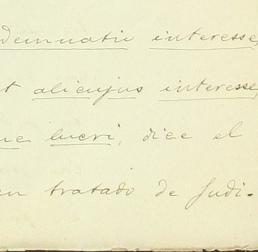 demnatii interesse,
t alicujus interesse,
ne lucri, dice el
en tratado de Judi-